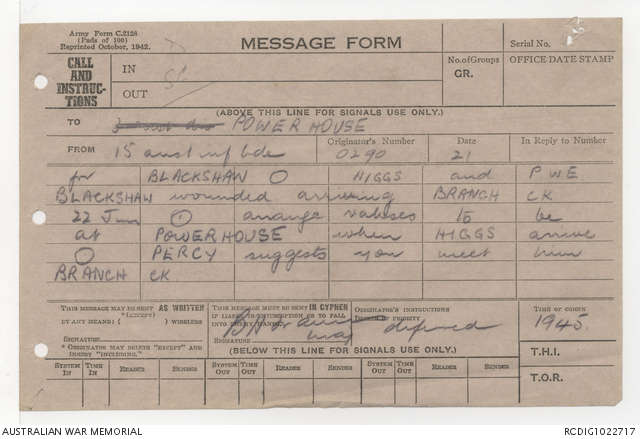 Army Form C.2128
(Pads of 100)
Reprinted October, 1942.
MESSAGE FORM
Serial No.
CALL AND INSTRUC-TIONS
IN
OUT
No. of Groups
GR.
OFFICE DATE STAMP
(ABOVE THIS LINE FOR SIGNALS USE ONLY.)
TO POWERHOUSE
FROM 15 aust inf bde
Originator's Number 0290
Date 21
In Reply to Number
for BLACKSHAW O HIGGS and PWE
BLACKSHAW wounded arriving BRANCH CK
22 Jun O arrange valises to be
at POWERHOUSE when HIGGS arrive
O PERCY suggests you meet him
BRANCH CK
THIS MESSAGE MAY BE SENT AS WRITTEN
(EXCEPT)
BY ANY MEANS ( ) WIRELESS
SIGNATURE
* ORIGINATOR MAY DELETE "EXCEPT" AND
INSERT "INCLUDING."
THIS MESSAGE MUST BE SENT IN CYPHER
IF LIABLE TO INTERCEPTION OR TO FALL
INTO ENEMY HANDS.
SIGNATURE
ORIGINATOR'S INSTRUCTIONS
DEGREE OF PRIORITY
deferred
TIME OF ORIGIN
1945.
T.H.I.
T.O.R.
(BELOW THIS LINE FOR SIGNALS USE ONLY.)
SYSTEM IN TIME IN READER SENDER SYSTEM OUT TIME OUT READER SENDER SYSTEM OUT TIME OUT READER SENDER
AUSTRALIAN WAR MEMORIAL
RCDIG1022717